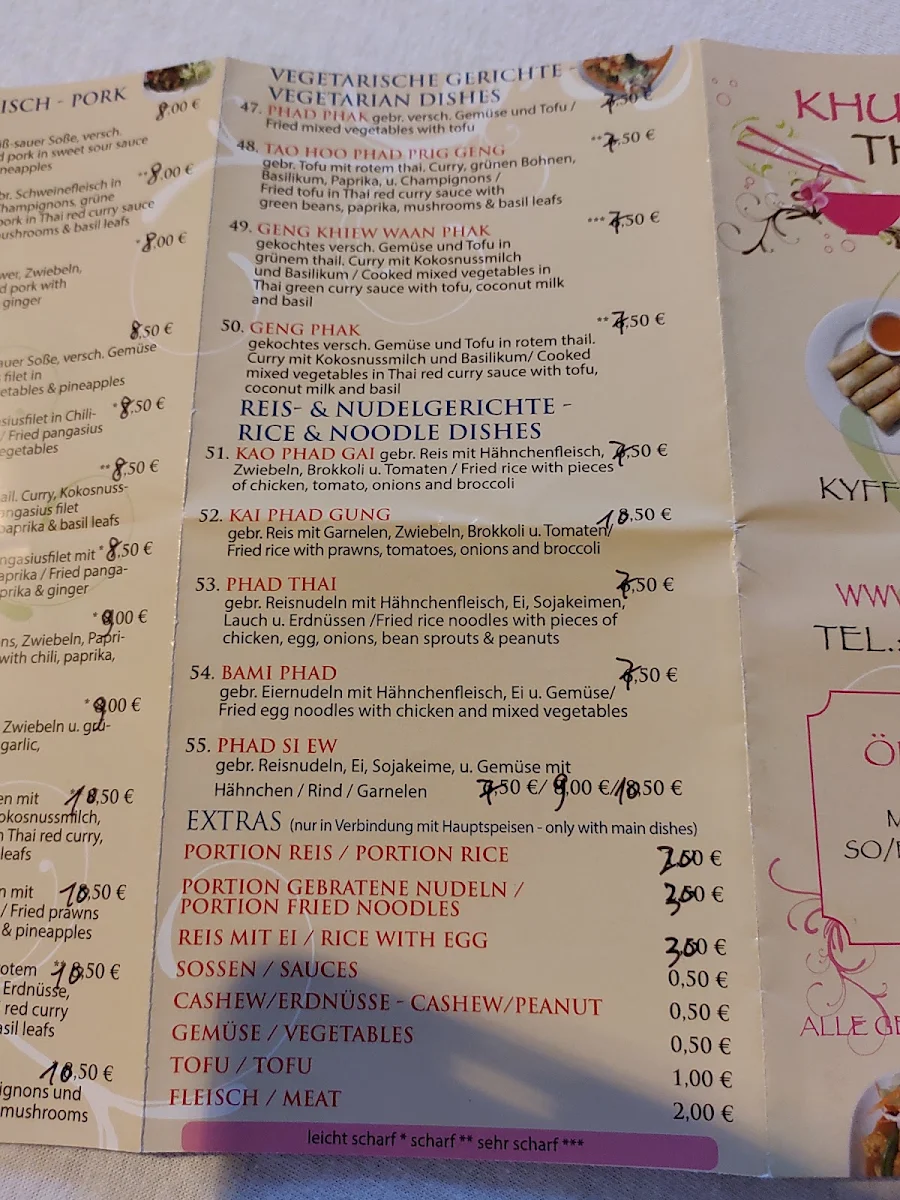 ISCH - PORK
8,00 €
ß-sauer Soße, versch.
d pork in sweet sour sauce
neapples
**8,00 €
br. Schweinefleisch in
hampignons, grüne
ork in Thai red curry sauce
ushrooms & basil leafs
*8,00 €
wer, Zwiebeln,
d pork with
ginger
8,50 €
auer Soße, versch. Gemüse
filet in
etables & pineapples
*8,50 €
siusfilet in Chili-
/ Fried pangasius
egetables
**8,50 €
ail. Curry, Kokosnuss-
angasius filet
paprika & basil leafs
ngasiusfilet mit *8,50 €
aprika / Fried panga-
prika & ginger
*9,00 €
ns, Zwiebeln, Papri-
with chili, paprika,
*9,00 €
Zwiebeln u. grü-
garlic,
en mit 10,50 €
okosnussmilch,
n Thai red curry,
leafs
n mit 10,50 €
/ Fried prawns
& pineapples
otem 10,50 €
Erdnüsse,
red curry
asil leafs
10,50 €
ignons und
mushrooms
VEGETARISCHE GERICHTE -
VEGETARIAN DISHES
47. PHAD PHAK gebr. versch. Gemüse und Tofu / 7,50 €
Fried mixed vegetables with tofu
48. TAO HOO PHAD PRIG GENG **7,50 €
gebr. Tofu mit rotem thai. Curry, grünen Bohnen,
Basilikum, Paprika, u. Champignons /
Fried tofu in Thai red curry sauce with
green beans, paprika, mushrooms & basil leafs
49. GENG KHIEW WAAN PHAK ***7,50 €
gekochtes versch. Gemüse und Tofu in
grünem thail. Curry mit Kokosnussmilch
und Basilikum / Cooked mixed vegetables in
Thai green curry sauce with tofu, coconut milk
and basil
50. GENG PHAK **7,50 €
gekochtes versch. Gemüse und Tofu in rotem thail.
Curry mit Kokosnussmilch und Basilikum/ Cooked
mixed vegetables in Thai red curry sauce with tofu,
coconut milk and basil
REIS- & NUDELGERICHTE -
RICE & NOODLE DISHES
51. KAO PHAD GAI gebr. Reis mit Hähnchenfleisch, 7,50 €
Zwiebeln, Brokkoli u. Tomaten / Fried rice with pieces
of chicken, tomato, onions and broccoli
52. KAI PHAD GUNG 10,50 €
gebr. Reis mit Garnelen, Zwiebeln, Brokkoli u. Tomaten/
Fried rice with prawns, tomatoes, onions and broccoli
53. PHAD THAI 7,50 €
gebr. Reisnudeln mit Hähnchenfleisch, Ei, Sojakeimen,
Lauch u. Erdnüssen /Fried rice noodles with pieces of
chicken, egg, onions, bean sprouts & peanuts
54. BAMI PHAD 7,50 €
gebr. Eiernudeln mit Hähnchenfleisch, Ei u. Gemüse/
Fried egg noodles with chicken and mixed vegetables
55. PHAD SI EW
gebr. Reisnudeln, Ei, Sojakeime, u. Gemüse mit
Hähnchen / Rind / Garnelen 7,50 €/ 9,00 €/10,50 €
EXTRAS (nur in Verbindung mit Hauptspeisen - only with main dishes)
PORTION REIS / PORTION RICE 2,00 €
PORTION GEBRATENE NUDELN /
PORTION FRIED NOODLES 3,00 €
REIS MIT EI / RICE WITH EGG 3,00 €
SOSSEN / SAUCES 0,50 €
CASHEW/ERDNÜSSE - CASHEW/PEANUT 0,50 €
GEMÜSE / VEGETABLES 0,50 €
TOFU / TOFU 1,00 €
FLEISCH / MEAT 2,00 €
leicht scharf * scharf ** sehr scharf ***
KHU
TH
KYFF
WWW
TEL.:
ÖF
M
SO/
ALLE GE